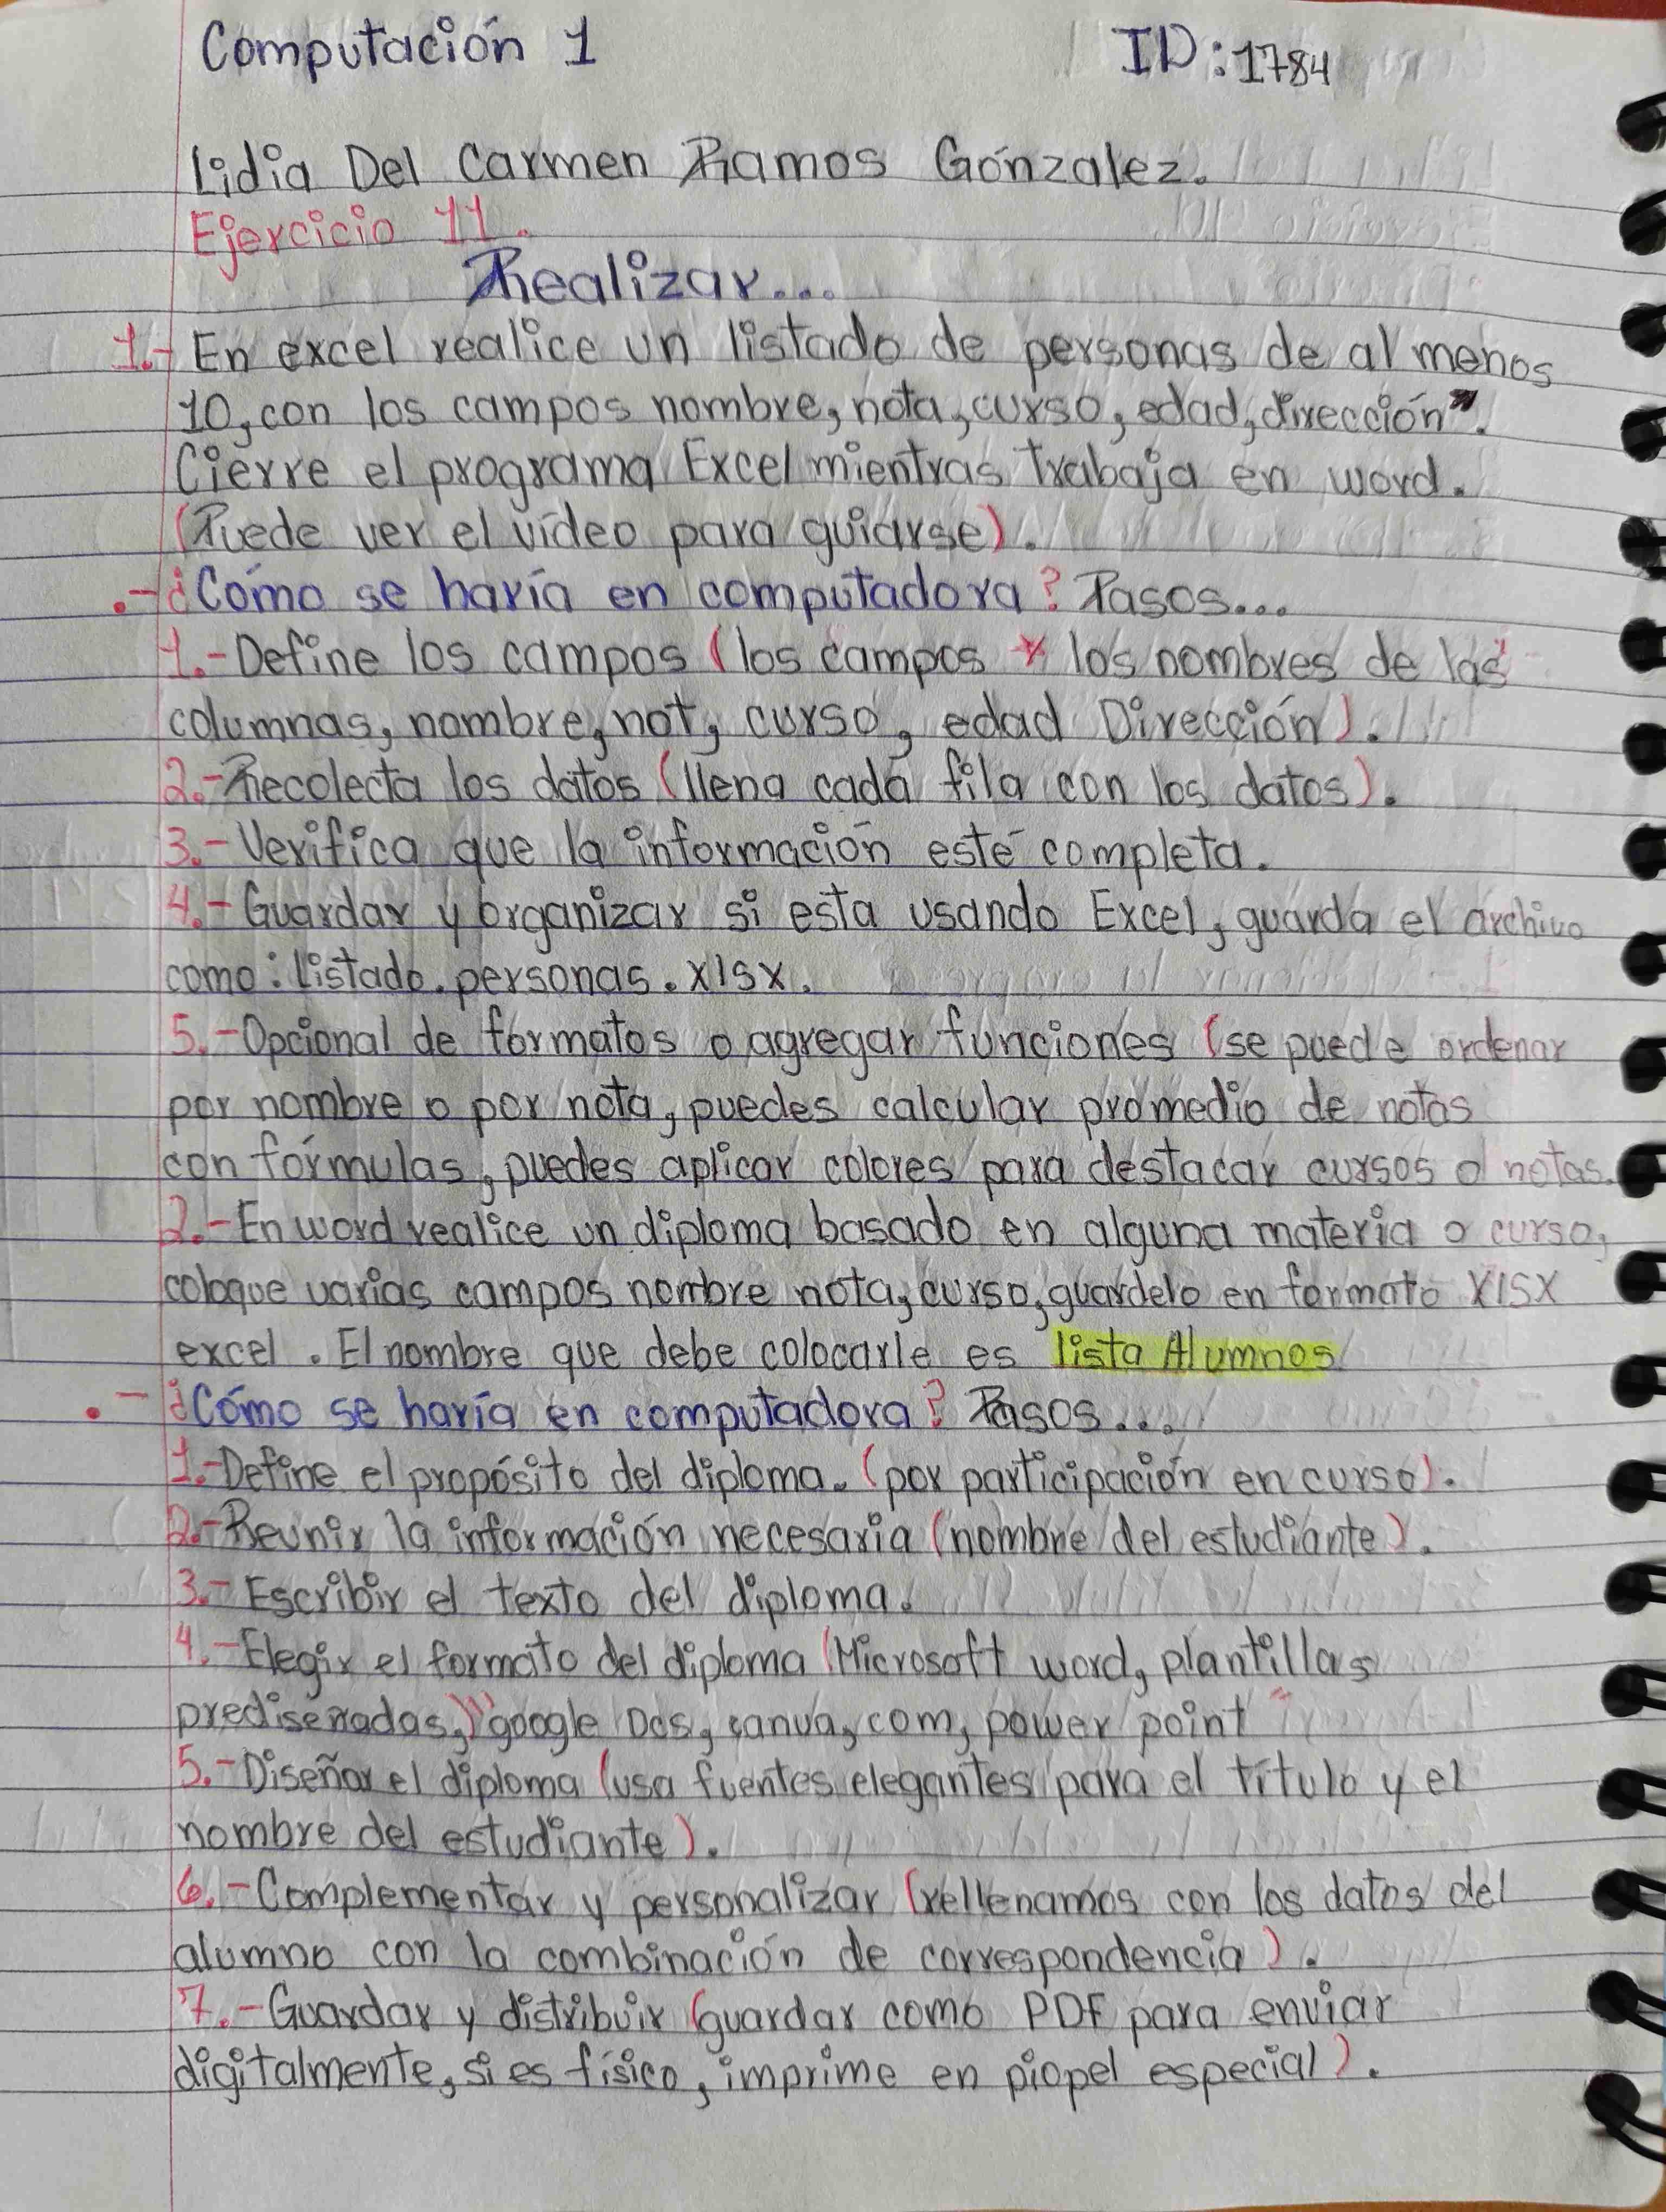 Computación 1 ID:1784
Lidia Del Carmen Ramos Gónzalez.
Ejercicio 11.
Realizar...
1.- En excel realice un listado de personas de al menos
10, con los campos nombre, nota, curso, edad, dirección".
Cierre el programa Excel mientras trabaja en word.
(Puede ver el vídeo para guiarse).
.- ¿Cómo se haría en computadora? Pasos...
1.- Define los campos (los campos y los nombres de las
columnas, nombre, not, curso, edad Dirección).
2.- Recolecta los datos (llena cada fila con los datos).
3.- Verifica que la información esté completa.
4.- Guardar y organizar si esta usando Excel, guarda el archivo
como: listado.personas.xlsx.
5.- Opcional de formatos o agregar funciones (se puede ordenar
por nombre o por nota, puedes calcular promedio de notas
con fórmulas, puedes aplicar colores para destacar cursos o notas.
2.- En word realice un diploma basado en alguna materia o curso,
coloque varias campos nombre nota, curso, guardelo en formato XlSX
excel. El nombre que debe colocarle es lista Alumnos
.- ¿Cómo se haría en computadora? Pasos...
1.- Define el propósito del diploma. (por participación en curso).
2.- Reunir la información necesaria (nombre del estudiante).
3.- Escribir el texto del diploma.
4.- Elegir el formato del diploma (Microsoft word, plantillas
prediseñadas,) "google Dcs, canva, com, power point"
5.- Diseñar el diploma (usa fuentes elegantes para el título y el
nombre del estudiante).
6.- Complementar y personalizar (rellenamos con los datos del
alumno con la combinación de correspondencia).
7.- Guardar y distribuir (guardar como PDF para enviar
digitalmente, si es físico, imprime en piopel especial).